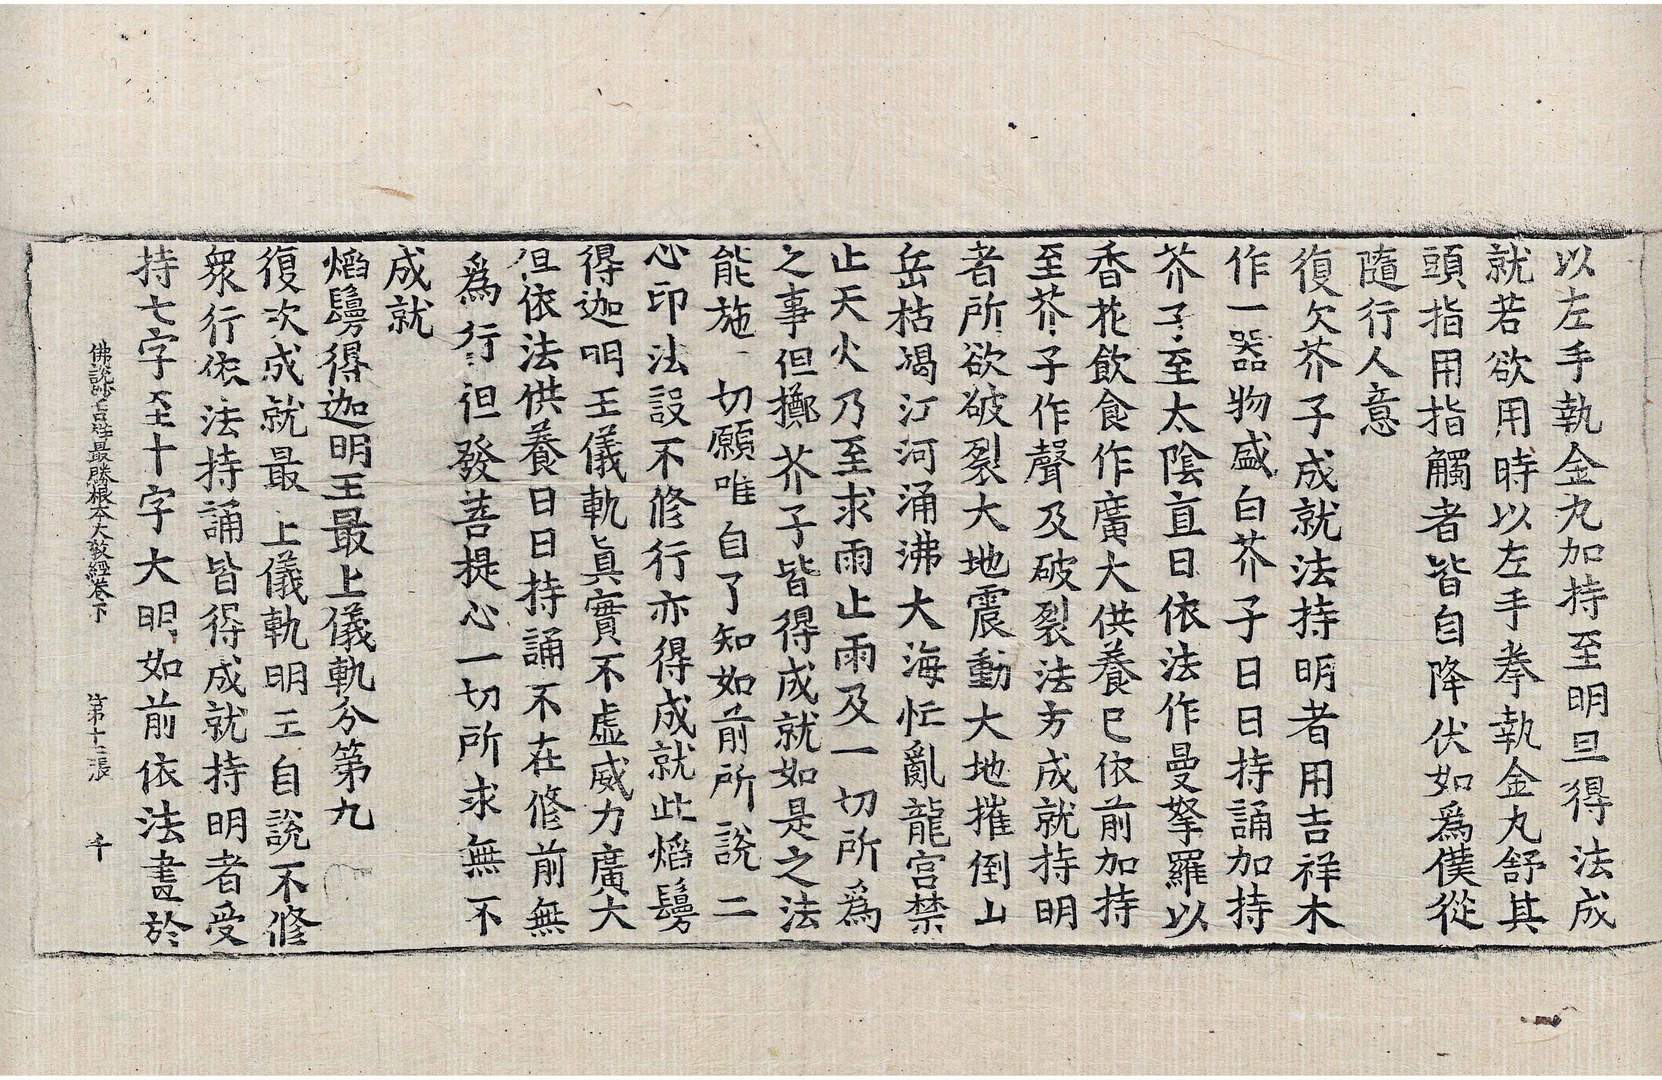 以左手執金丸加持至明旦得法成
就若欲用時以左手拳執金丸舒其
頭指用指觸者皆自降伏如爲僕從
隨行人意
復次芥子成就法持明者用吉祥木
作一器物盛白芥子日日持誦加持
芥子至太陰直日依法作曼拏羅以
香花飲食作廣大供養已依前加持
至芥子作聲及破裂法方成就持明
者所欲破裂大地震動大地摧倒山
岳枯竭江河涌沸大海忙亂龍宮禁
止天火乃至求雨止雨及一切所爲
之事但擲芥子皆得成就如是之法
能施一切願唯自了知如前所說二
心印法設不修行亦得成就此焰鬘
得迦明王儀軌眞實不虛威力廣大
但依法供養日日持誦不在修前無
爲行但發菩提心一切所求無不
成就
焰鬘得迦明王最上儀軌分第九
復次成就最上儀軌明王自說不修
衆行依法持誦皆得成就持明者受
持七字至十字大明如前依法畫於
佛說妙吉祥最勝根本大敎經卷下 第十三張 千